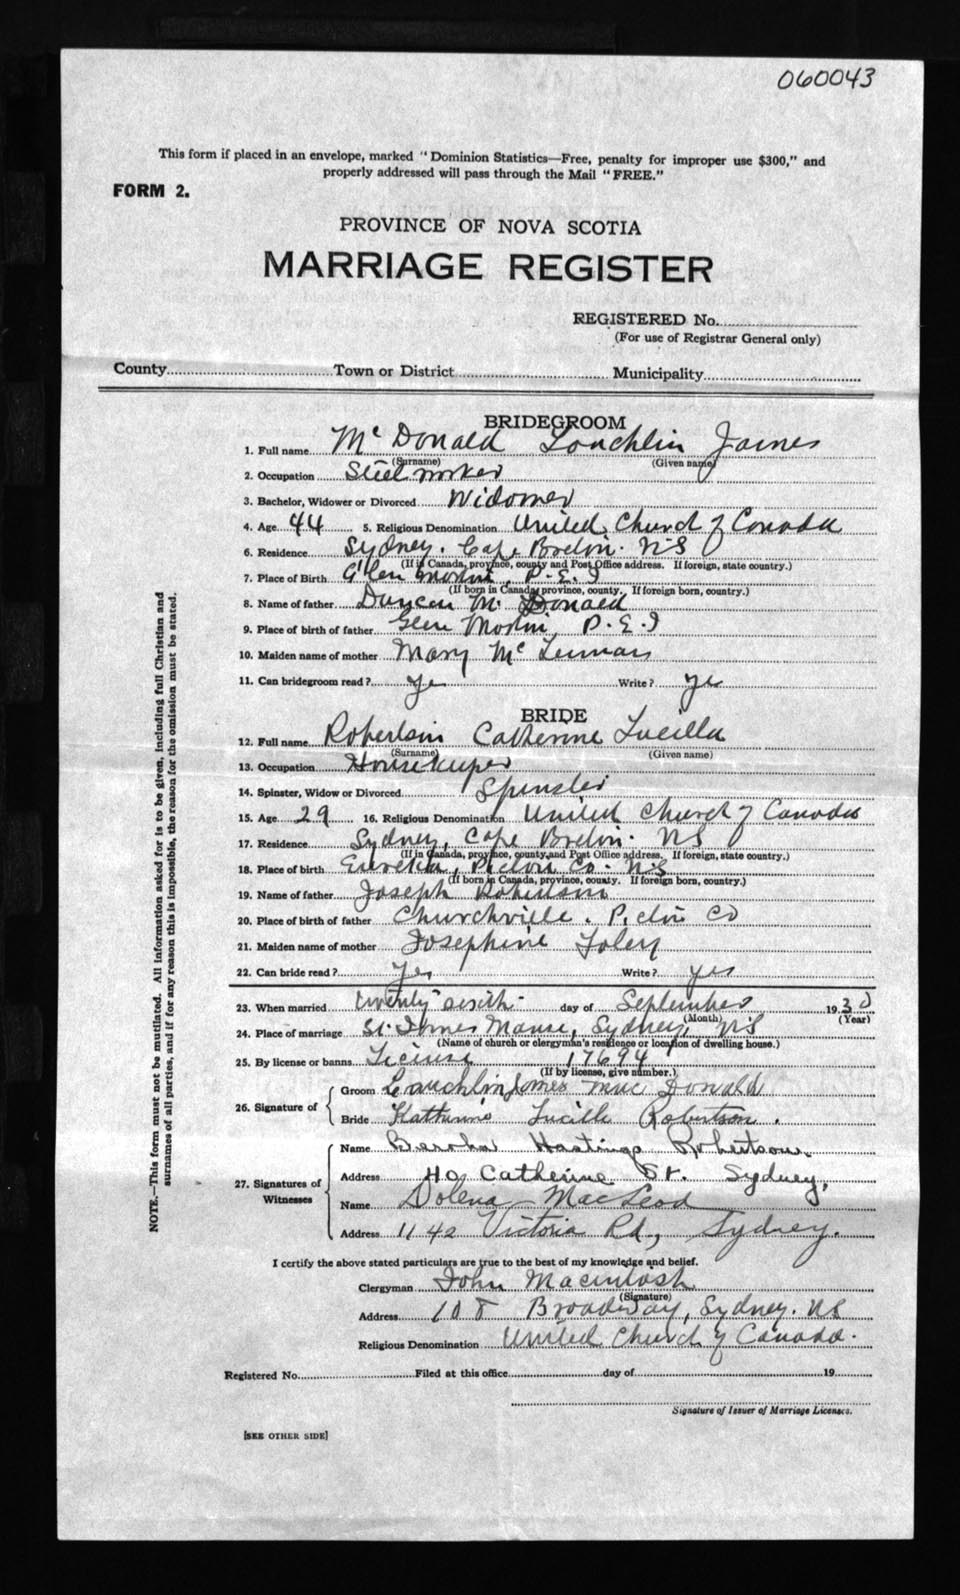 060043
This form if placed in an envelope, marked "Dominion Statistics—Free, penalty for improper use $300," and
properly addressed will pass through the Mail "FREE."
FORM 2.
PROVINCE OF NOVA SCOTIA
MARRIAGE REGISTER
REGISTERED No.
(For use of Registrar General only)
County Town or District Municipality
BRIDEGROOM
1. Full name McDonald Loughlin James
(Surname) (Given name)
2. Occupation Steel worker
3. Bachelor, Widower or Divorced Widower
4. Age 44 5. Religious Denomination United Church of Canada
6. Residence Sydney. Cape Breton. N S
(If in Canada, province, county and Post Office address. If foreign, state country.)
7. Place of Birth Glen Martin, P.E.I
(If born in Canada, province, county. If foreign born, country.)
8. Name of father Duncan McDonald
9. Place of birth of father Glen Martin, P.E.I
10. Maiden name of mother Mary Mc
11. Can bridegroom read? yes Write? yes
BRIDE
12. Full name Robertson Catherine Lucilla
(Surname) (Given name)
13. Occupation Housekeeper
14. Spinster, Widow or Divorced Spinster
15. Age 29 16. Religious Denomination United Church of Canada
17. Residence Sydney, Cape Breton. N S
(If in Canada, province, county and Post Office address. If foreign, state country.)
18. Place of birth Eureka, Pictou Co. N S
(If born in Canada, province, county. If foreign born, country.)
19. Name of father Joseph Robertson
20. Place of birth of father Churchville. Pictou Co
21. Maiden name of mother Josephine Foley
22. Can bride read? Yes Write? yes
23. When married twenty sixth day of September 1930
(Month) (Year)
24. Place of marriage St. James Manse, Sydney, N S
(Name of church or clergyman's residence or location of dwelling house.)
25. By license or banns License 17694
(If by license, give number.)
26. Signature of
Groom Lauchlin James Mac Donald
Bride Katherine Lucille Robertson.
27. Signatures of Witnesses
Name Hastings Robertson.
Address 40 Catherine St. Sydney,
Name Dolena MacLeod
Address 1142 Victoria Rd, Sydney.
I certify the above stated particulars are true to the best of my knowledge and belief.
Clergyman John Macintosh
(Signature)
Address 108 Broadway, Sydney. N S
Religious Denomination United Church of Canada.
Registered No. Filed at this office day of 19
Signature of Issuer of Marriage Licenses.
[SEE OTHER SIDE]
NOTE.—This form must not be mutilated. All information asked for is to be given, including full Christian and
surnames of all parties, and if for any reason this is impossible, the reason for the omission must be stated.